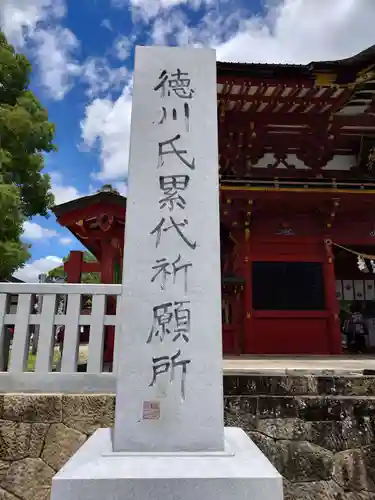 徳川氏累代祈願所